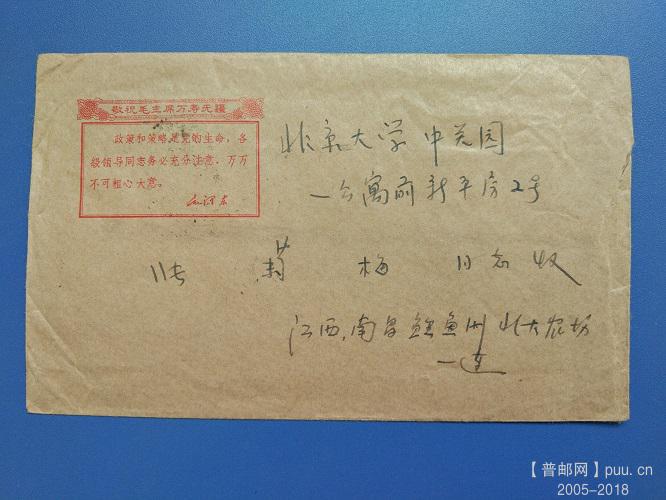 敬祝毛主席万寿无疆
政策和策略是党的生命，各
级领导同志务必充分注意，万万
不可粗心大意。
毛泽东
北京大学中关园
一公寓前新平房2号
张菊梅同志收
江西，南昌鲤鱼洲北大农场
一连
【普邮网】puu.cn
2005-2018